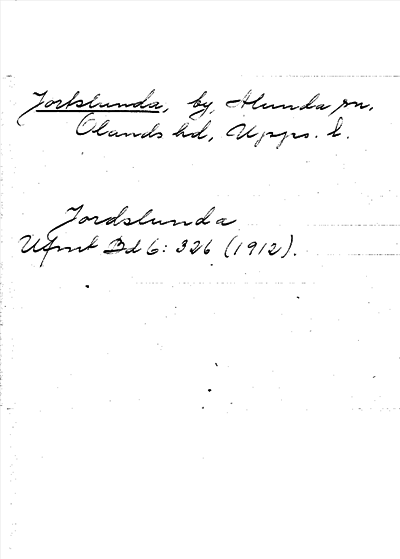 Jorkslunda, by, Alunda sn,
Olands hd, Upps. l.
Jordslunda
Ufmt Bd 6: 326 (1912).